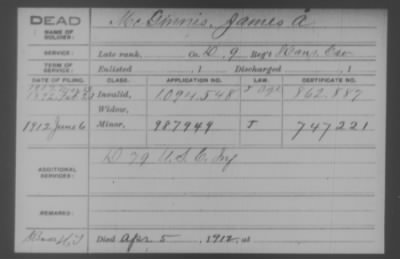 DEAD
NAME OF SOLDIER:
McDinnis, James A
SERVICE:
Late rank, Co. D, 9 Reg't Kans. Cav
TERM OF SERVICE:
Enlisted , 1 Discharged , 1
DATE OF FILING. CLASS. APPLICATION NO. LAW. CERTIFICATE NO.
Invalid, 1.094.548 862.887
Widow,
1912 June 6 Minor, 987949 J 747221
ADDITIONAL SERVICES:
D 79 U.S.C. Inf
REMARKS:
Died Apr 5, 1912, at